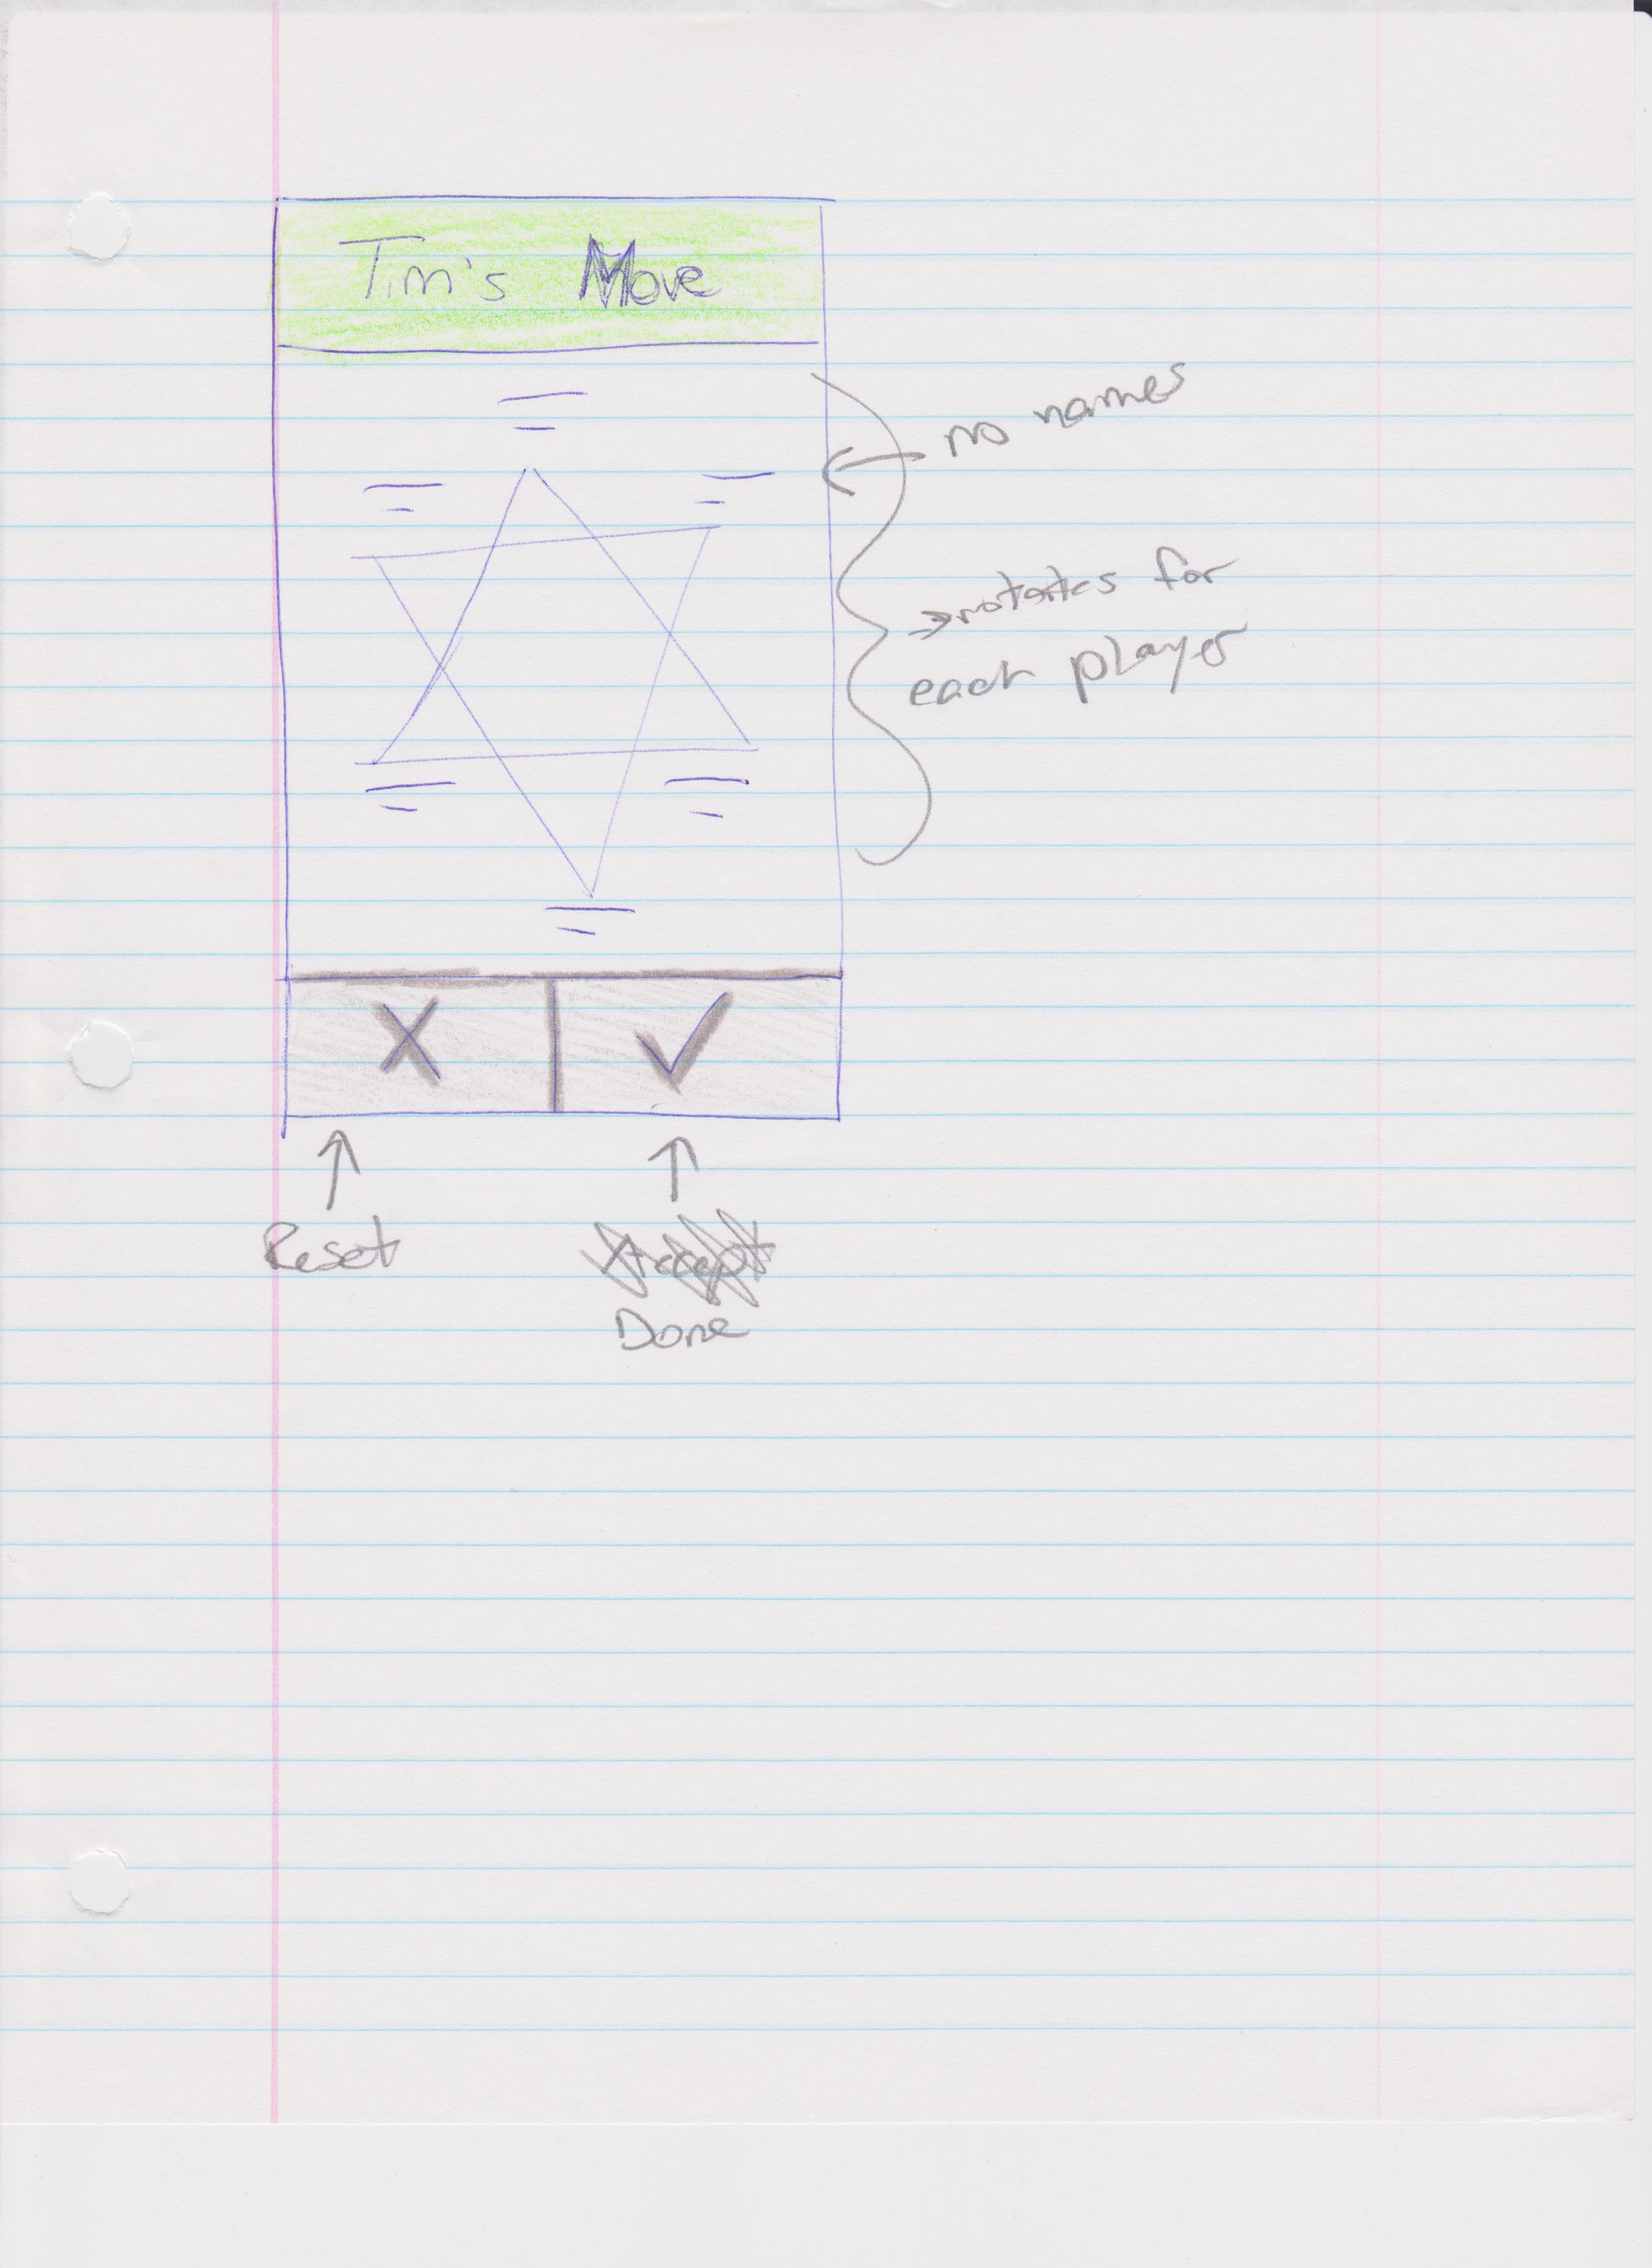 Tim's Move
no names
→rotates for
each player
X ✓
Reset
Accept
Done